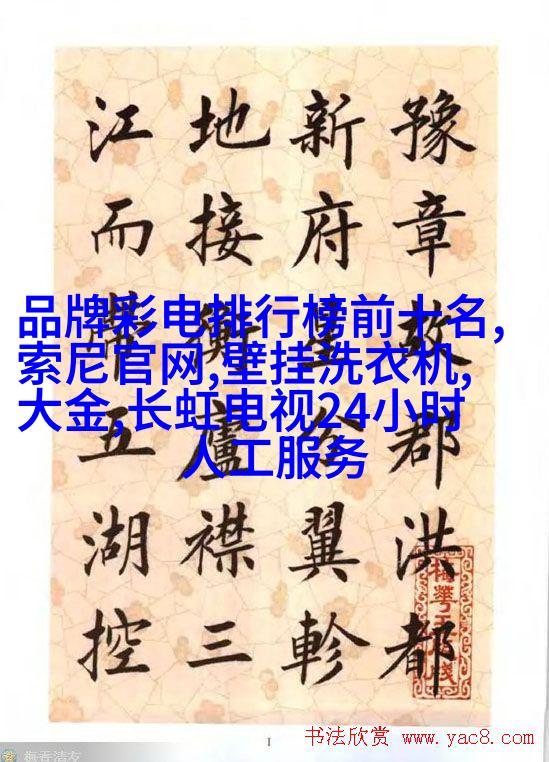 豫章故郡洪都
新府星分翼軫
地接衡廬襟三
江而帶五湖控
品牌彩电排行榜前十名,
索尼官网,壁挂洗衣机,
大金,长虹电视24小时
人工服务
1
书法欣赏 www.yac8.com